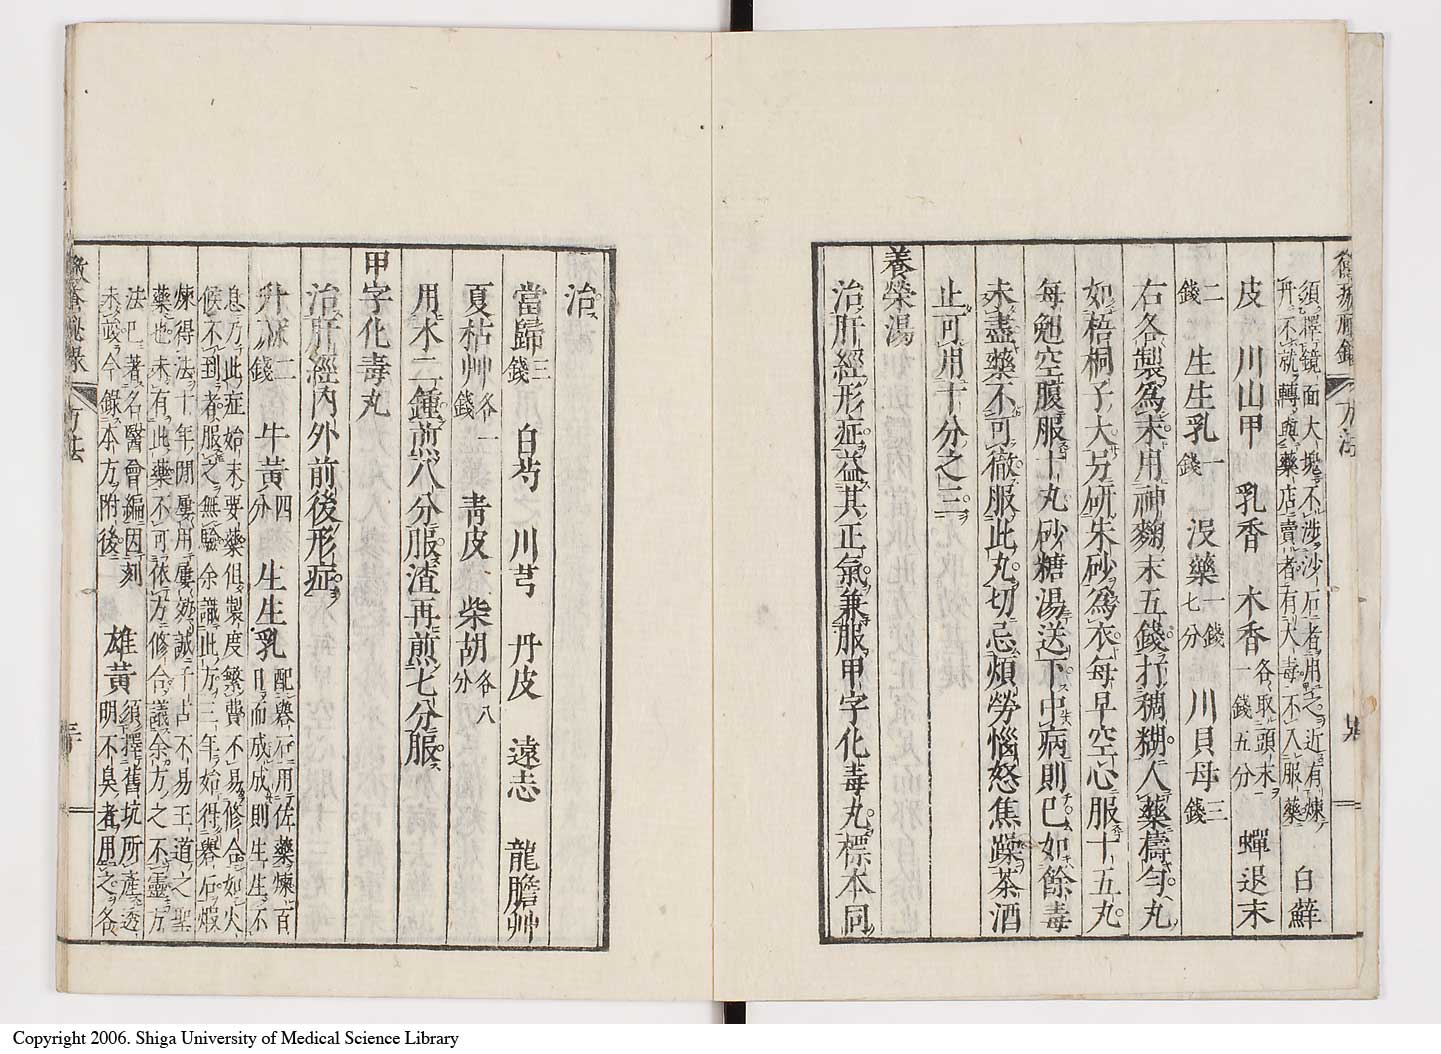 須擇鏡面大塊不涉沙石者用之近有煉
丹不就轉與藥店賣者有大毒不入服藥
白蘚
皮 川山甲 乳香 木香各取頭末一錢五分 蟬退末
二錢 生生乳一錢 沒藥一錢七分 川貝母三錢
右各製為末用神麴末五錢打稠糊入藥擣勻丸
如梧桐子大另研朱砂為衣每早空心服十五丸
每勉空腹服十丸砂糖湯送下中病則已如餘毒
未盡藥不可徹服此丸切忌煩勞惱怒焦躁茶酒
止可用十分之三
養榮湯
治肝經形症益其正氣兼服甲字化毒丸標本同
方法
治
當歸三錢 白芍 川芎 丹皮 遠志 龍膽艸
夏枯艸各一錢 青皮 柴胡各八分
用水二鍾煎八分服渣再煎七分服
甲字化毒丸
治肝經內外前後形症
牛黃四分 生生乳配礜石用佐藥煉百日而成成則生生不
息乃此症始末要藥但製度繁費不易修合如火
候不到者服之無驗余識此方三年始得礜石煅
煉得法十年閒屢用屢効誠千古不易王道之聖
藥也未有此藥不可依方修合議余方之不靈方
法巴著名醫會編因刻
未竣今錄本方附後
雄黃須擇舊坑所產透
明不臭者用之各
方法
黴瘡秘錄